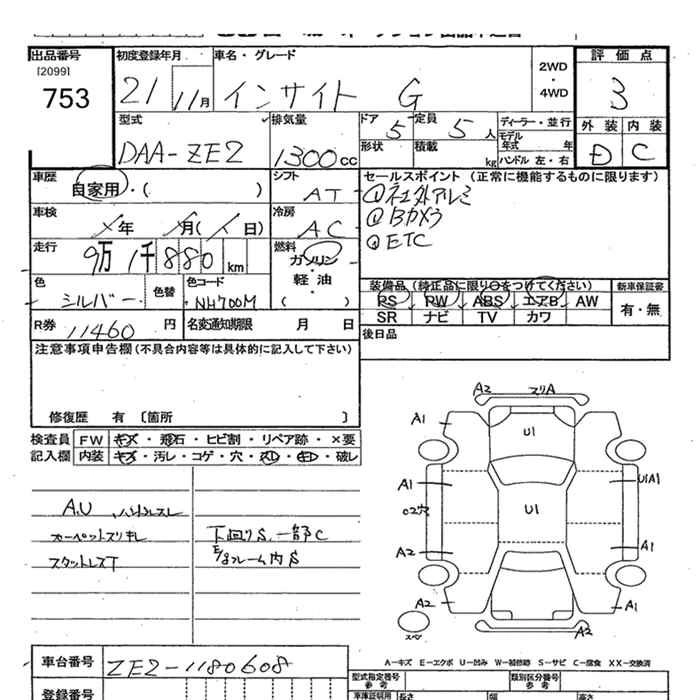 出品番号 初度登録年月 車名・グレード 2WD ・ 4WD 評価点
[2099]
753 21 11月 インサイト G 3
型式 排気量 ドア 定員 ディーラー・並行 外装 内装
DAA-ZE2 1300cc 5 5人 モデル年式 年 D C
形状 積載 kg ハンドル 左・右
車歴 自家用・( ) シフト AT セールスポイント (正常に機能するものに限ります)
①社外アルミ
②Bカメラ
③ETC
車検 年 月( 日) 冷房 AC
走行 9万1千880km 燃料 ガソリン・軽油( )
色 シルバー 色替 色コード NH700M
装備品 (純正品に限り○をつけてください) 新車保証書
PS PW ABS エアB AW 有・無
SR ナビ TV カワ
R券 11460円 名変通知期限 月 日 後日品
注意事項申告欄(不具合内容等は具体的に記入して下さい)
修復歴 有 〔箇所 〕
検査員 FW キズ・飛石・ヒビ割・リペア跡・×要
記入欄 内装 キズ・汚レ・コゲ・穴・スレ・キレ・破レ
A.U ハンドルスレ
カーペットスリキレ 下回りS、一部C
スタットレスT フレーム内S
A2 マリA
A1 U1
A1 U1A1
C2穴 U1
A2 A1
A2 A1
スペア A2
A-キズ E-エクボ U-凹み W-補修跡 S-サビ C-腐食 XX-交換済
車台番号 ZE2-1180608 型式指定番号 参考 類別区分番号 参考
登録番号 車庫証明用 長さ 幅 高さ